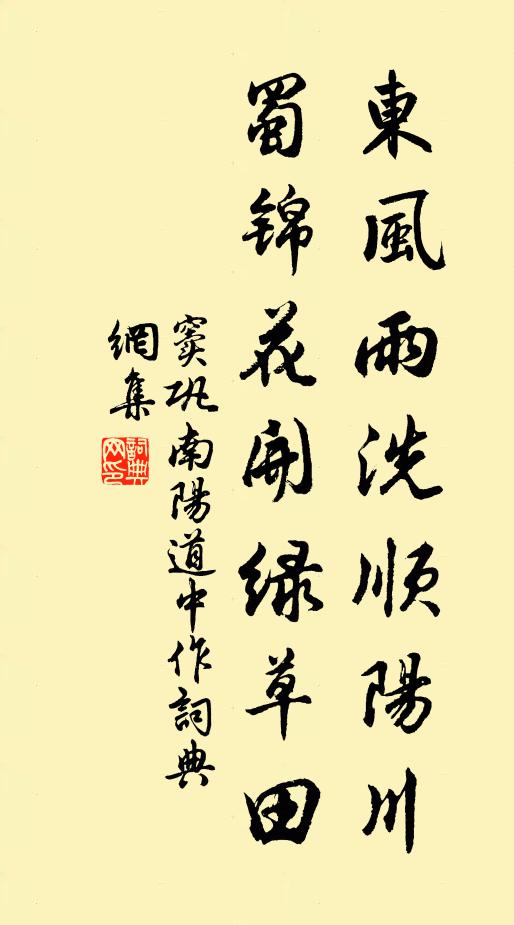 東風雨洗順陽川
蜀锦花開緑草田
竇巩南陽道中作詞典
網集
詞典
网印